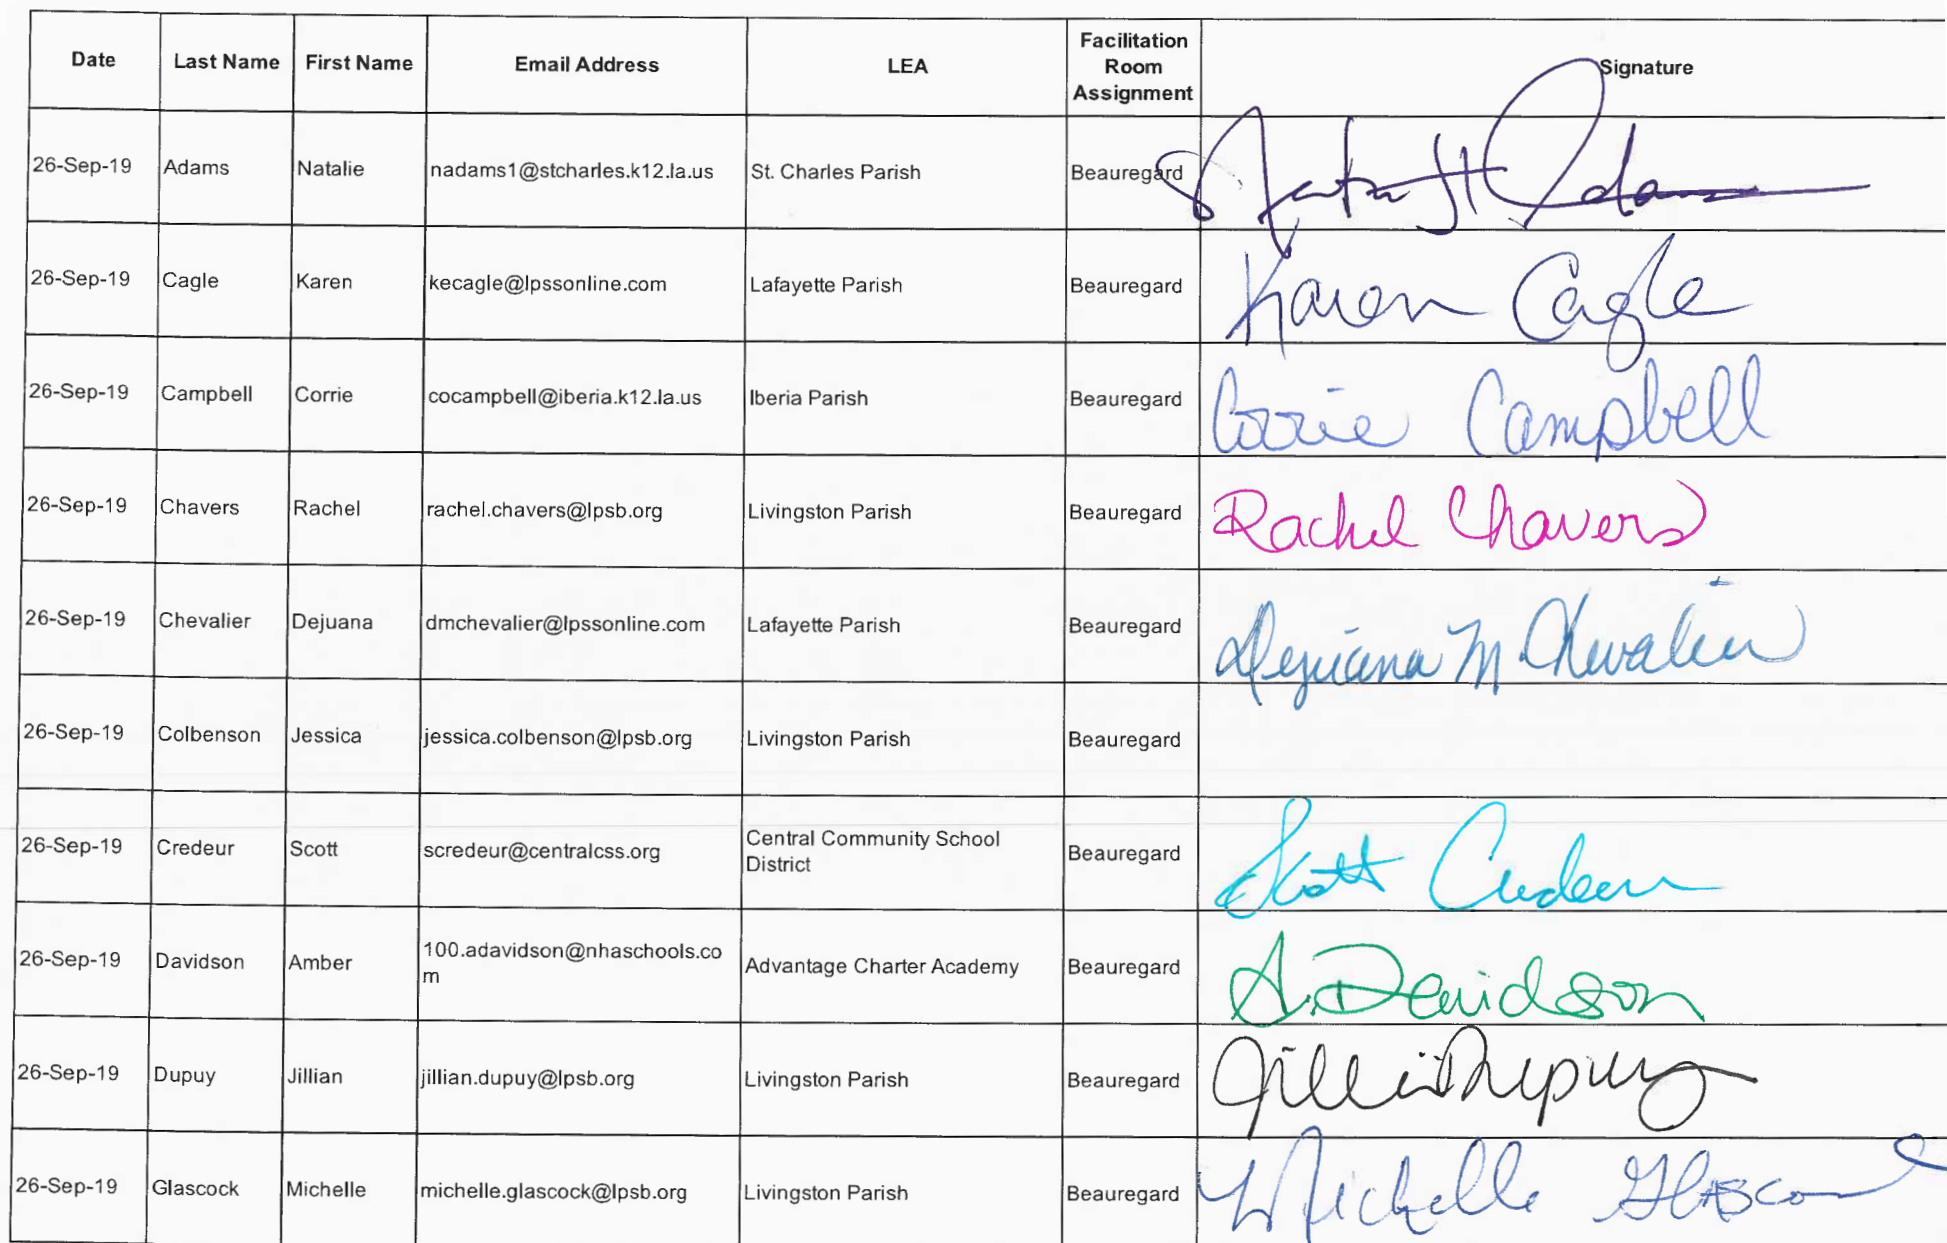 Date Last Name First Name Email Address LEA Facilitation Room Assignment Signature
26-Sep-19 Adams Natalie nadams1@stcharles.k12.la.us St. Charles Parish Beauregard
26-Sep-19 Cagle Karen kecagle@lpssonline.com Lafayette Parish Beauregard Karen Cagle
26-Sep-19 Campbell Corrie cocampbell@iberia.k12.la.us Iberia Parish Beauregard Corrie Campbell
26-Sep-19 Chavers Rachel rachel.chavers@lpsb.org Livingston Parish Beauregard Rachel Chavers
26-Sep-19 Chevalier Dejuana dmchevalier@lpssonline.com Lafayette Parish Beauregard Dejuana M. Chevalier
26-Sep-19 Colbenson Jessica jessica.colbenson@lpsb.org Livingston Parish Beauregard
26-Sep-19 Credeur Scott scredeur@centralcss.org Central Community School District Beauregard Scott Credeur
26-Sep-19 Davidson Amber 100.adavidson@nhaschools.com Advantage Charter Academy Beauregard A. Davidson
26-Sep-19 Dupuy Jillian jillian.dupuy@lpsb.org Livingston Parish Beauregard Jilli Dupuy
26-Sep-19 Glascock Michelle michelle.glascock@lpsb.org Livingston Parish Beauregard Michelle